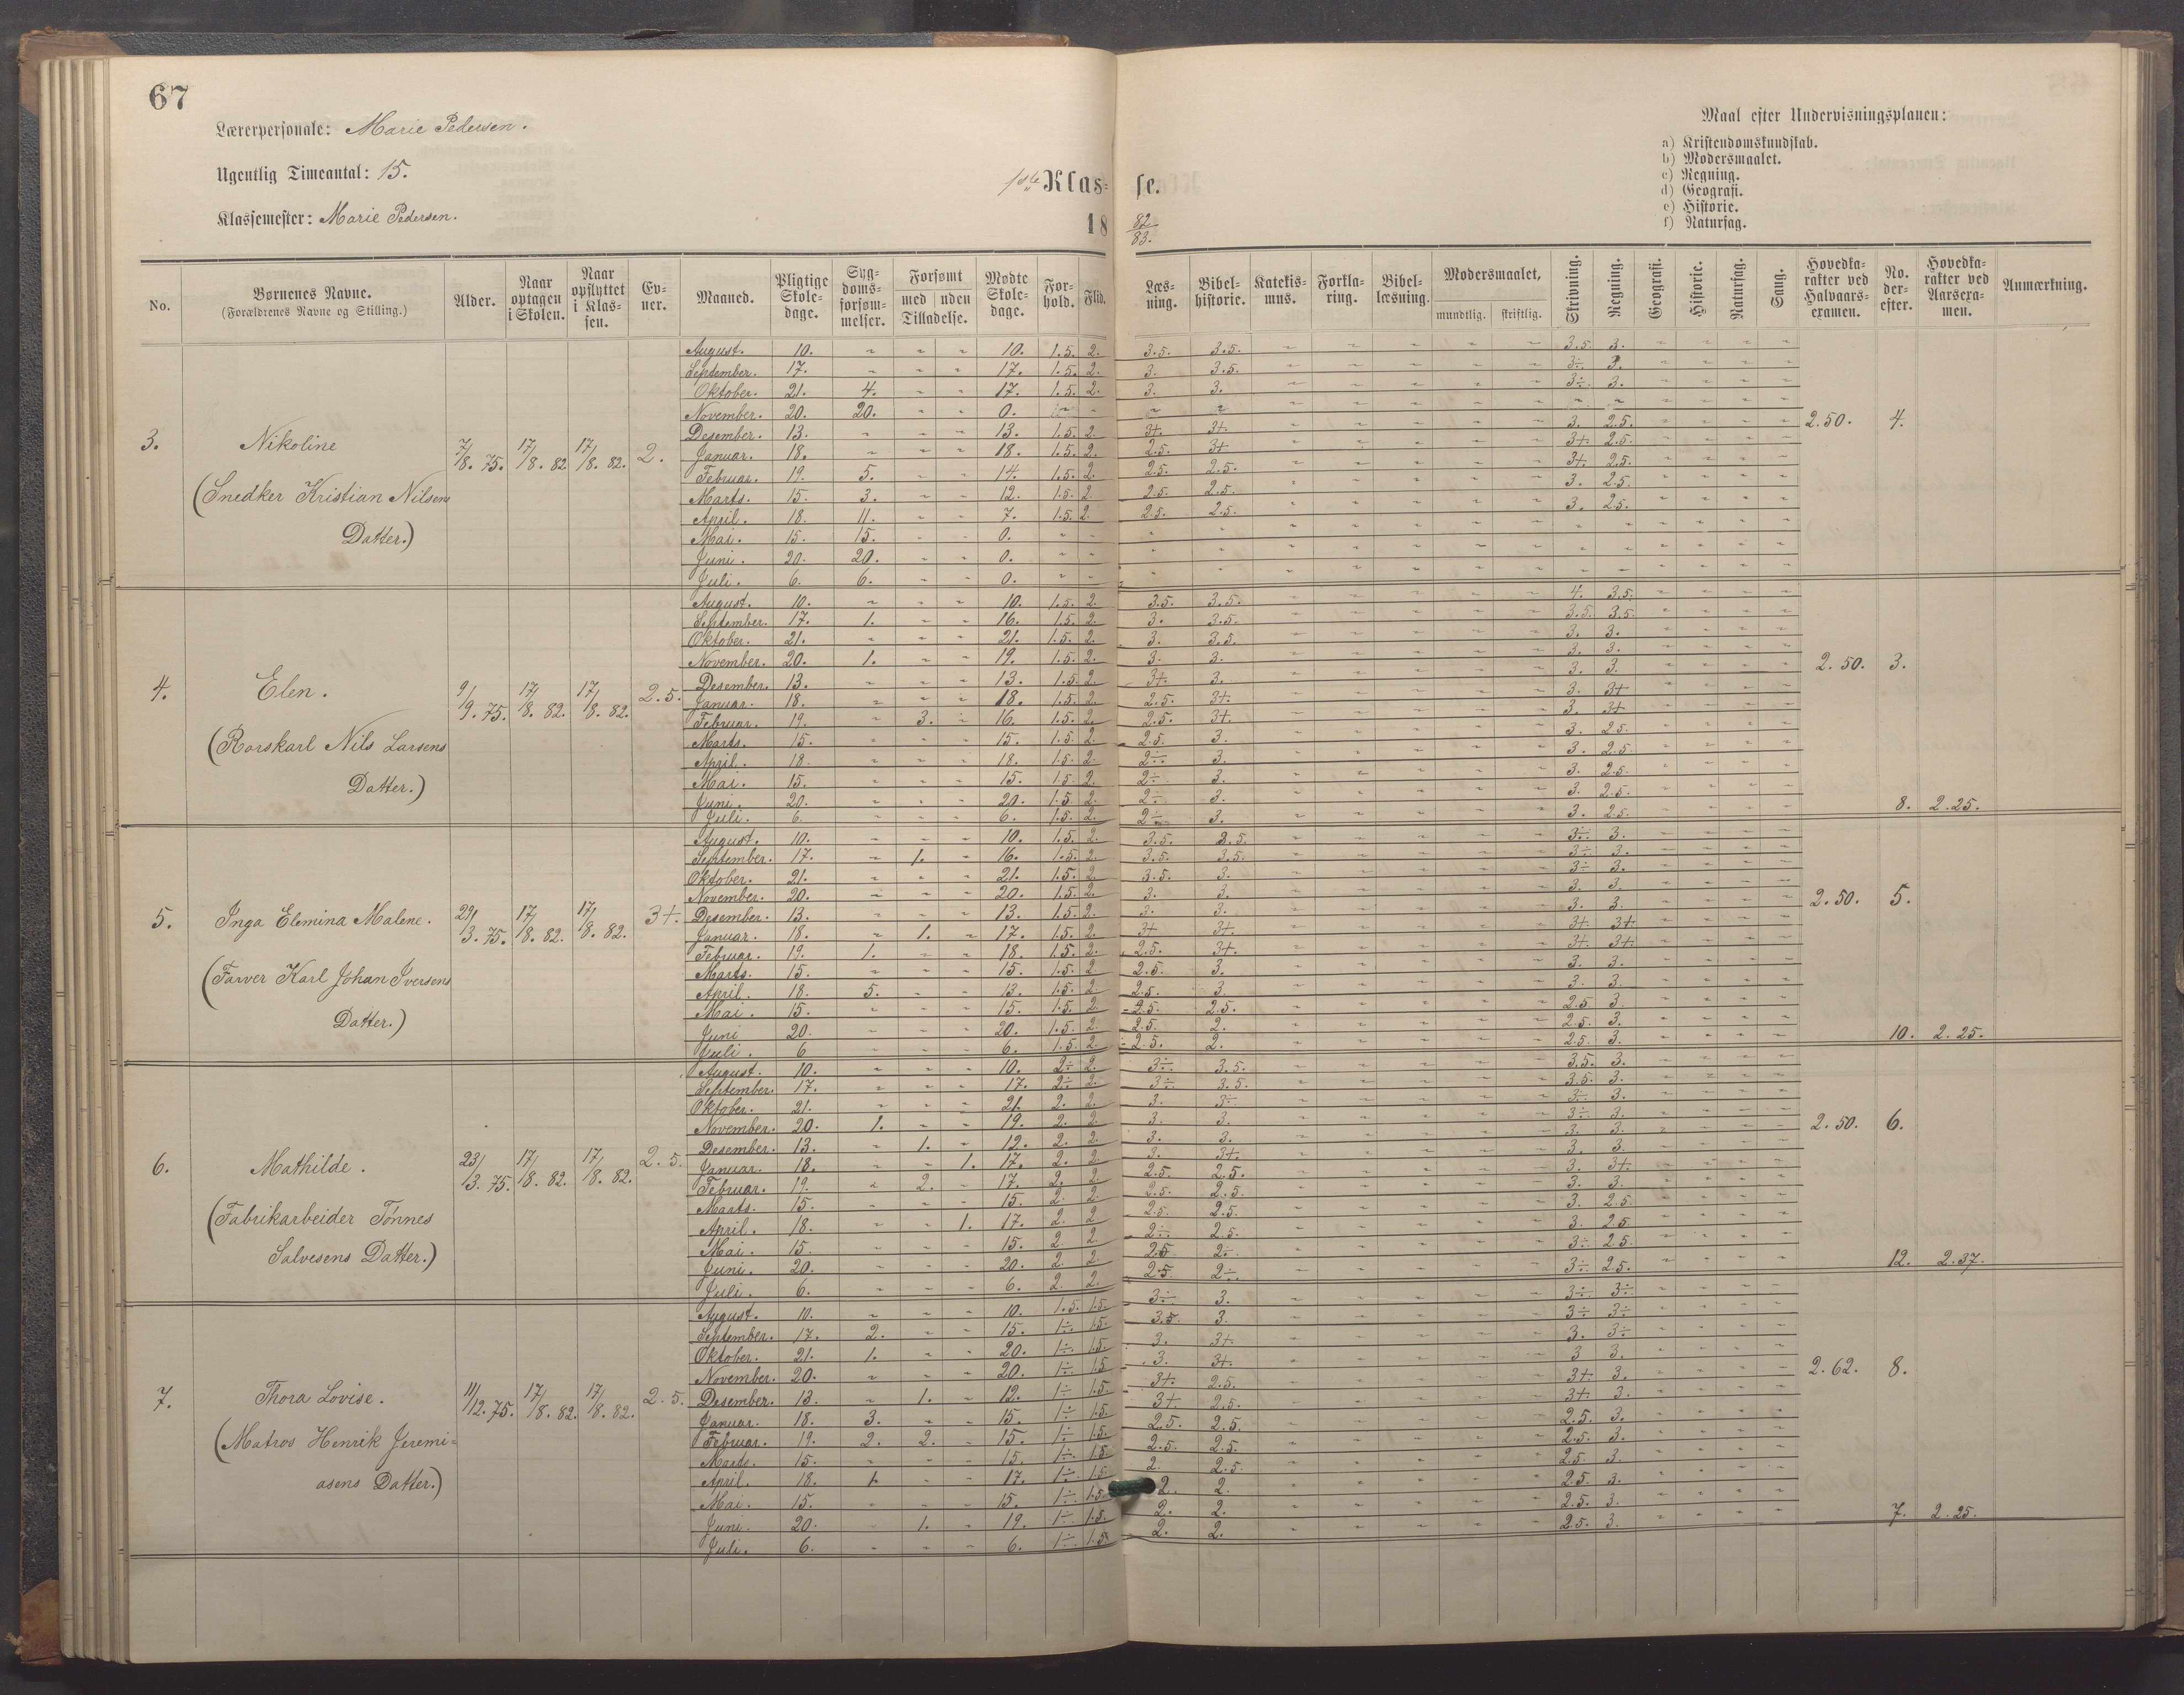 67
Lærerpersonale: Marie Pedersen.
Ugentlig Timeantal: 15.
Klassemester: Marie Pedersen.
1ste Klasse.
18 82/83.
Maal efter Undervisningsplanen:
a) Kristendomskundskab.
b) Modersmaalet.
c) Regning.
d) Geografi.
e) Historie.
f) Naturfag.
No. Børnenes Navne. (Forældrenes Navne og Stilling.) Alder. Naar optagen i Skolen. Naar opflyttet i Klassen. Evner. Maaned. Pligtige Skoledage. Sygdomsforsømmelser. Forsømt med uden Tilladelse. Mødte Skoledage. Forhold. Flid. Læsning. Bibelhistorie. Katekismus. Forklaring. Bibellæsning. Modersmaalet, mundtlig. skriftlig. Skrivning. Regning. Geografi. Historie. Naturfag. Sang. Hovedkarakter ved Halvaarsexamen. No. derefter. Hovedkarakter ved Aarsexamen. Anmærkning.
3. Nikoline (Snedker Kristian Nilsens Datter.) 7/8. 75. 17/8. 82 17/8. 82. 2. 2.50. 4.
August. 10. " " " 10. 1.5. 2. 3.5. 3.5. " " " " " 3.5. 3. " " " "
September. 17. " " " 17. 1.5. 2. 3. 3.5. " " " " " 3÷. 3. " " " "
Oktober. 21. 4. " " 17. 1.5. 2. 3. 3. " " " " " 3÷. 3. " " " "
November. 20. 20. " " 0. " " " " " " " " " " " " " " "
Desember. 13. " " " 13. 1.5. 2. 3+. 3+. " " " " " 3. 2.5. " " " "
Januar. 18. " " " 18. 1.5. 2. 2.5. 3+ " " " " " 3+. 2.5. " " " "
Februar. 19. 5. " " 14. 1.5. 2. 2.5. 2.5. " " " " " 3+. 2.5. " " " "
Marts. 15. 3. " " 12. 1.5. 2. 2.5. 2.5. " " " " " 3. 2.5. " " " "
April. 18. 11. " " 7. 1.5. 2. 2.5. 2.5. " " " " " 3. 2.5. " " " "
Mai. 15. 15. " " 0. " " " " " " " " " " " " " " "
Juni. 20. 20. " " 0. " " " " " " " " " " " " " " "
Juli. 6. 6. " " 0. " " " " " " " " " " " " " " "
4. Elen. (Rorskarl Nils Larsens Datter.) 9/9. 75. 17/8. 82. 17/8. 82. 2.5. 2.50. 3. 8. 2.25.
August. 10. " " " 10. 1.5. 2. 3.5. 3.5. " " " " " 4. 3.5. " " " "
September. 17. 1. " " 16. 1.5. 2. 3. 3.5. " " " " " 3.5. 3.5. " " " "
Oktober. 21. " " " 21. 1.5. 2. 3. 3.5. " " " " " 3. 3. " " " "
November. 20. 1. " " 19. 1.5. 2. 3. 3. " " " " " 3. 3. " " " "
Desember. 13. " " " 13. 1.5. 2. 3+. 3. " " " " " 3. 3. " " " "
Januar. 18. " " " 18. 1.5. 2. 2.5. 3+. " " " " " 3. 3+ " " " "
Februar. 19. " 3. " 16. 1.5. 2. 2.5. 3+. " " " " " 3. 3+ " " " "
Marts. 15. " " " 15. 1.5. 2. 2.5. 3. " " " " " 3. 2.5. " " " "
April. 18. " " " 18. 1.5. 2. 2÷. 3. " " " " " 3. 2.5. " " " "
Mai. 15. " " " 15. 1.5. 2. 2÷. 3. " " " " " 3. 2.5. " " " "
Juni. 20. " " " 20. 1.5. 2. 2÷. 3. " " " " " 3. 2.5. " " " "
Juli. 6. " " " 6. 1.5. 2. 2÷ 3. " " " " " 3. 2.5. " " " "
5. Inga Elemina Malene. (Farver Karl Johan Iversens Datter.) 29/3. 75. 17/8. 82. 17/8. 82. 3+. 2.50. 5. 10. 2.25.
August. 10. " " " 10. 1.5. 2. 3.5. 3.5. " " " " " 3÷. 3. " " " "
September. 17. " 1. " 16. 1.5. 2. 3.5. 3.5. " " " " " 3÷. 3. " " " "
Oktober. 21. " " " 21. 1.5. 2. 3.5. 3. " " " " " 3÷ 3. " " " "
November. 20. " " " 20. 1.5. 2. 3. 3. " " " " " 3. 3. " " " "
Desember. 13. " " " 13. 1.5. 2. 3. 3. " " " " " 3. 3. " " " "
Januar. 18. " 1. " 17. 1.5. 2. 3+ 3+. " " " " " 3+. 3+. " " " "
Februar. 19. 1. " " 18. 1.5. 2. 2.5. 3+. " " " " " 3+. 3+. " " " "
Marts. 15. " " " 15. 1.5. 2 2.5. 3. " " " " " 3. 3. " " " "
April. 18. 5. " " 13. 1.5. 2 2.5. 3 " " " " " 3. 3. " " " "
Mai. 15. " " " 15. 1.5. 2 2.5. 2.5. " " " " " 2.5. 3. " " " "
Juni 20. " " " 20. 1.5. 2. 2.5. 2. " " " " " 2.5. 3. " " " "
Juli. 6 " " " 6. 1.5. 2. 2.5. 2. " " " " " 2.5. 3. " " " "
6. Mathilde. (Fabrikarbeider Tønnes Salvesens Datter.) 23/3. 75. 17/8. 82. 17/8. 82. 2.5. 2.50. 6. 12. 2.37.
August. 10. " " " 10. 2÷ 2. 3÷. 3.5. " " " " " 3.5. 3. " " " "
September. 17. " " " 17. 2÷ 2. 3÷. 3.5. " " " " " 3.5. 3. " " " "
Oktober. 21. " " " 21. 2. 2. 3. 3÷ " " " " " 3÷. 3. " " " "
November. 20. 1. " " 19. 2. 2. 3. 3. " " " " " 3÷. 3. " " " "
Desember. 13. " 1. " 12. 2. 2. 3. 3. " " " " " 3. 3. " " " "
Januar. 18. " " 1. 17. 2. 2. 3. 3+. " " " " " 3. 3. " " " "
Februar. 19. " 2. " 17. 2. 2. 2.5. 2.5. " " " " " 3. 3+. " " " "
Marts. 15. " " " 15. 2. 2. 2.5. 2.5. " " " " " 3. 3. " " " "
April. 18. " " 1. 17. 2. 2 2.5. 2.5. " " " " " 3. 2.5. " " " "
Mai. 15. " " " 15. 2 2. 2÷. 2.5. " " " " " 3. 2.5. " " " "
Juni. 20. " " " 20. 2. 2. 2.5 2÷. " " " " " 3÷ 2.5. " " " "
Juli. 6. " " " 6. 2. 2. 2.5. 2÷. " " " " " 3÷. 2.5. " " " "
7. Thora Lovise. (Matros Henrik Jeremiasens Datter.) 11/12. 75. 17/8. 82. 17/8. 82. 2.5. 2.62. 8. 7. 2.25.
August. 10. " " " 10. 1.5. 1.5. 3÷ 3. " " " " " 3÷. 3÷. " " " "
September. 17. 2. " " 15. 1÷. 1.5. 3.5. 3. " " " " " 3÷. 3÷ " " " "
Oktober. 21. 1. " " 20. 1÷. 1.5. 3. 3+. " " " " " 3. 3÷ " " " "
November. 20. " " " 20. 1÷. 1.5 3. 3+. " " " " " 3 3. " " " "
Desember. 13. " 1. " 12. 1÷ 1.5. 3+. 2.5. " " " " " 3+. 3. " " " "
Januar. 18. 3. " " 15. 1÷. 1.5 3+. 2.5. " " " " " 3+. 3. " " " "
Februar. 19. 2. 2. " 15. 1÷. 1.5. 2.5. 2.5. " " " " " 2.5. 3. " " " "
Marts. 15. " " " 15. 1÷. 1.5 2.5. 2.5. " " " " " 2.5. 3. " " " "
April. 18. 1. " " 17. 1÷. 1.5. 2. 2.5. " " " " " 2.5. 3. " " " "
Mai. 15. " " " 15. 1÷. 1.5. 2. 2. " " " " " 2.5. 3. " " " "
Juni. 20. " 1. " 19. 1÷. 1.5. 2. 2. " " " " " 2.5. 3. " " " "
Juli. 6. " " " 6. 1÷. 1.5. 2. 2. " " " " " 2.5. 3. " " " "